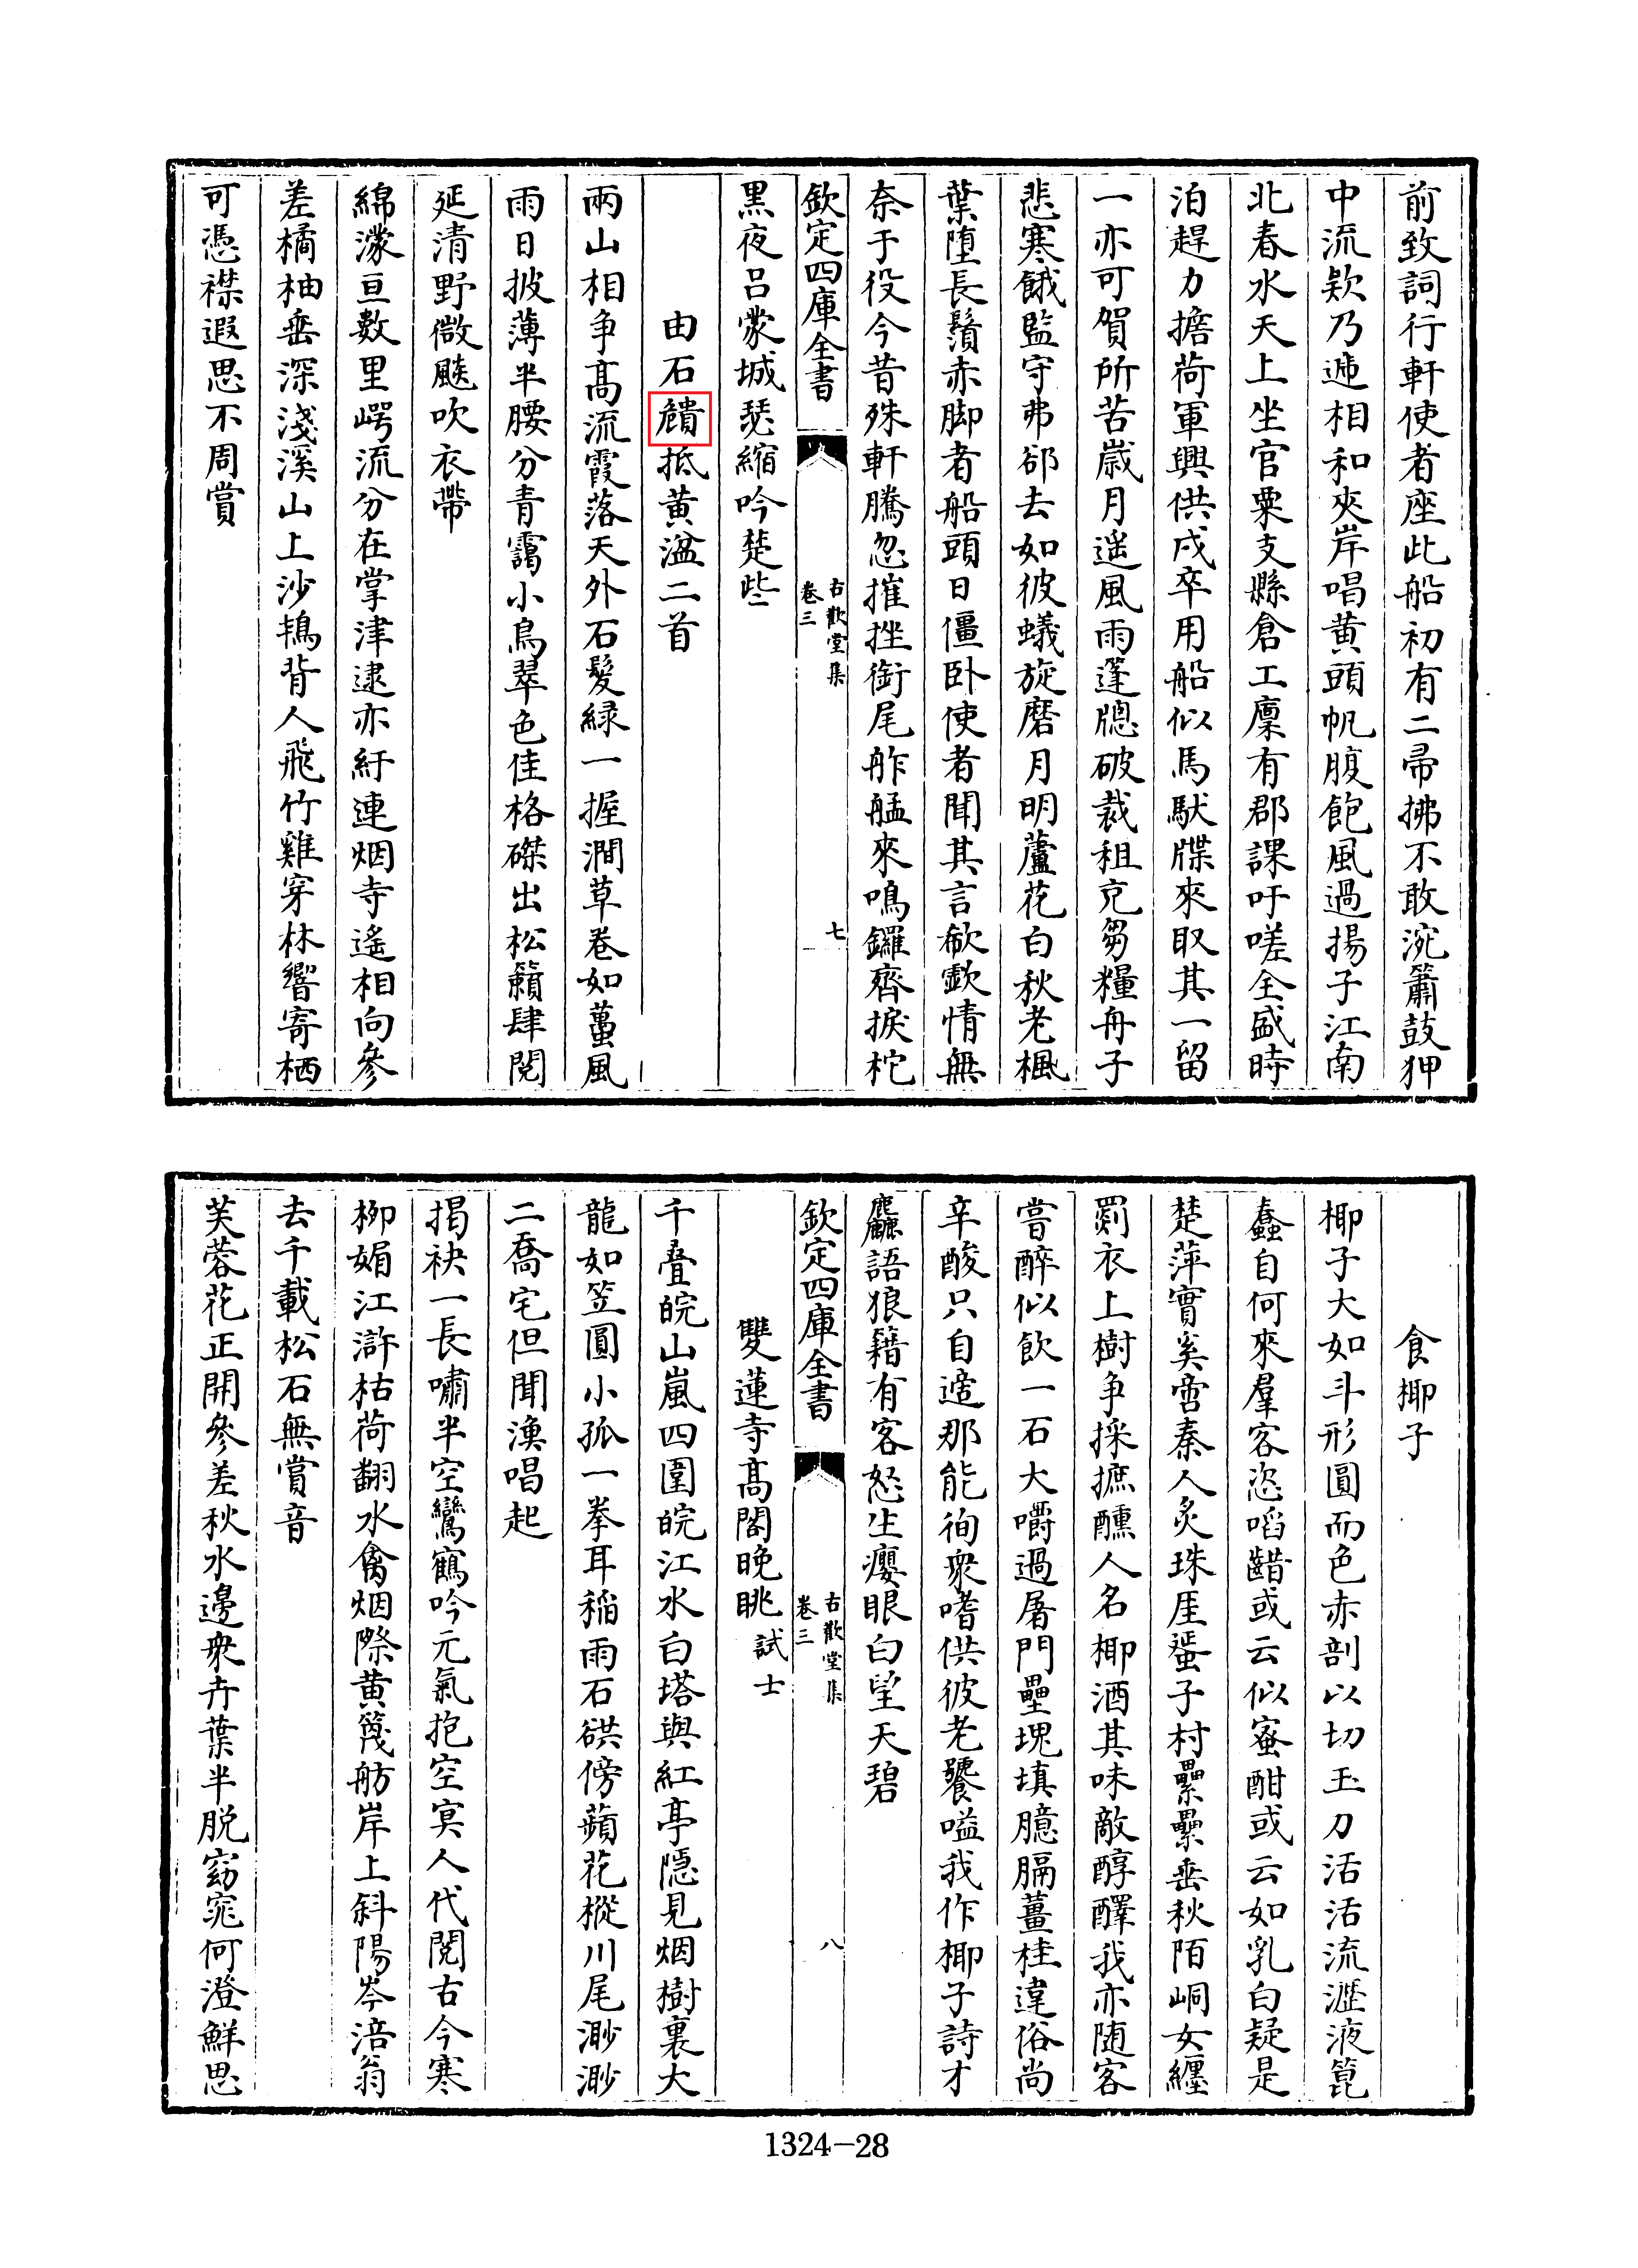 前致詞行軒使者座此船初有二帚拂不敢涴簫鼓狎
中流欵乃遞相和夾岸唱黄頭帆腹飽風過揚子江南
北春水天上坐官粟支縣倉工廪有郡課吁嗟全盛時
泊趕力擔荷軍興供戍卒用船似馬馱牒來取其一留
一亦可賀所苦嵗月遥風雨蓬牕破裁租充芻糧舟子
悲寒餓監守弗郤去如彼蟻旋磨月明蘆花白秋老楓
葉堕長鬚赤脚者船頭日僵卧使者聞其言欷歔情無
奈于役今昔殊軒騰忽摧挫銜尾舴艋來鳴鑼齊捩柁
欽定四庫全書
古歡堂集
卷三
七
黒夜吕蒙城瑟縮吟楚些
由石抵黄湓二首
兩山相争髙流霞落天外石髮緑一握澗草卷如蠆風
雨日披薄半腰分青靄小鳥翠色佳格磔出松籟肆閲
延清野微颷吹衣帶
綿濛亘數里崿流分在掌津逮亦紆連烟寺遙相向參
差橘柚垂深淺溪山上沙鴇背人飛竹雞穿林響寄栖
可憑襟遐思不周賞
食椰子
椰子大如斗形圓而色赤剖以切玉刀活活流瀝液篦
蠡自何來羣客恣啗齰或云似蜜酣或云如乳白疑是
楚萍實奚啻秦人炙珠厓蜑子村纍纍垂秋陌峒女纒
罽衣上樹争採摭醺人名椰酒其味敵醇醳我亦随客
嘗醉似飲一石大嚼過屠門壘塊填臆膈薑桂違俗尚
辛酸只自適那能徇衆嗜供彼老饕嗌我作椰子詩才
麤語狼籍有客怒生癭眼白望天碧
欽定四庫全書
古歡堂集
卷三
八
雙蓮寺髙閣晚眺試士
千疊皖山嵐四圍皖江水白塔與紅亭隱見烟樹裏大
龍如笠圓小孤一拳耳稲雨石谼傍蘋花樅川尾渺渺
二喬宅但聞漁唱起
揭袂一長嘯半空鸞鶴吟元氣抱空寞人代閲古今寒
柳媚江滸枯荷翻水禽烟際黄篾舫岸上斜陽岑涪翁
去千載松石無賞音
芙蓉花正開參差秋水邊衆卉葉半脱窈窕何澄鮮思
1324-28